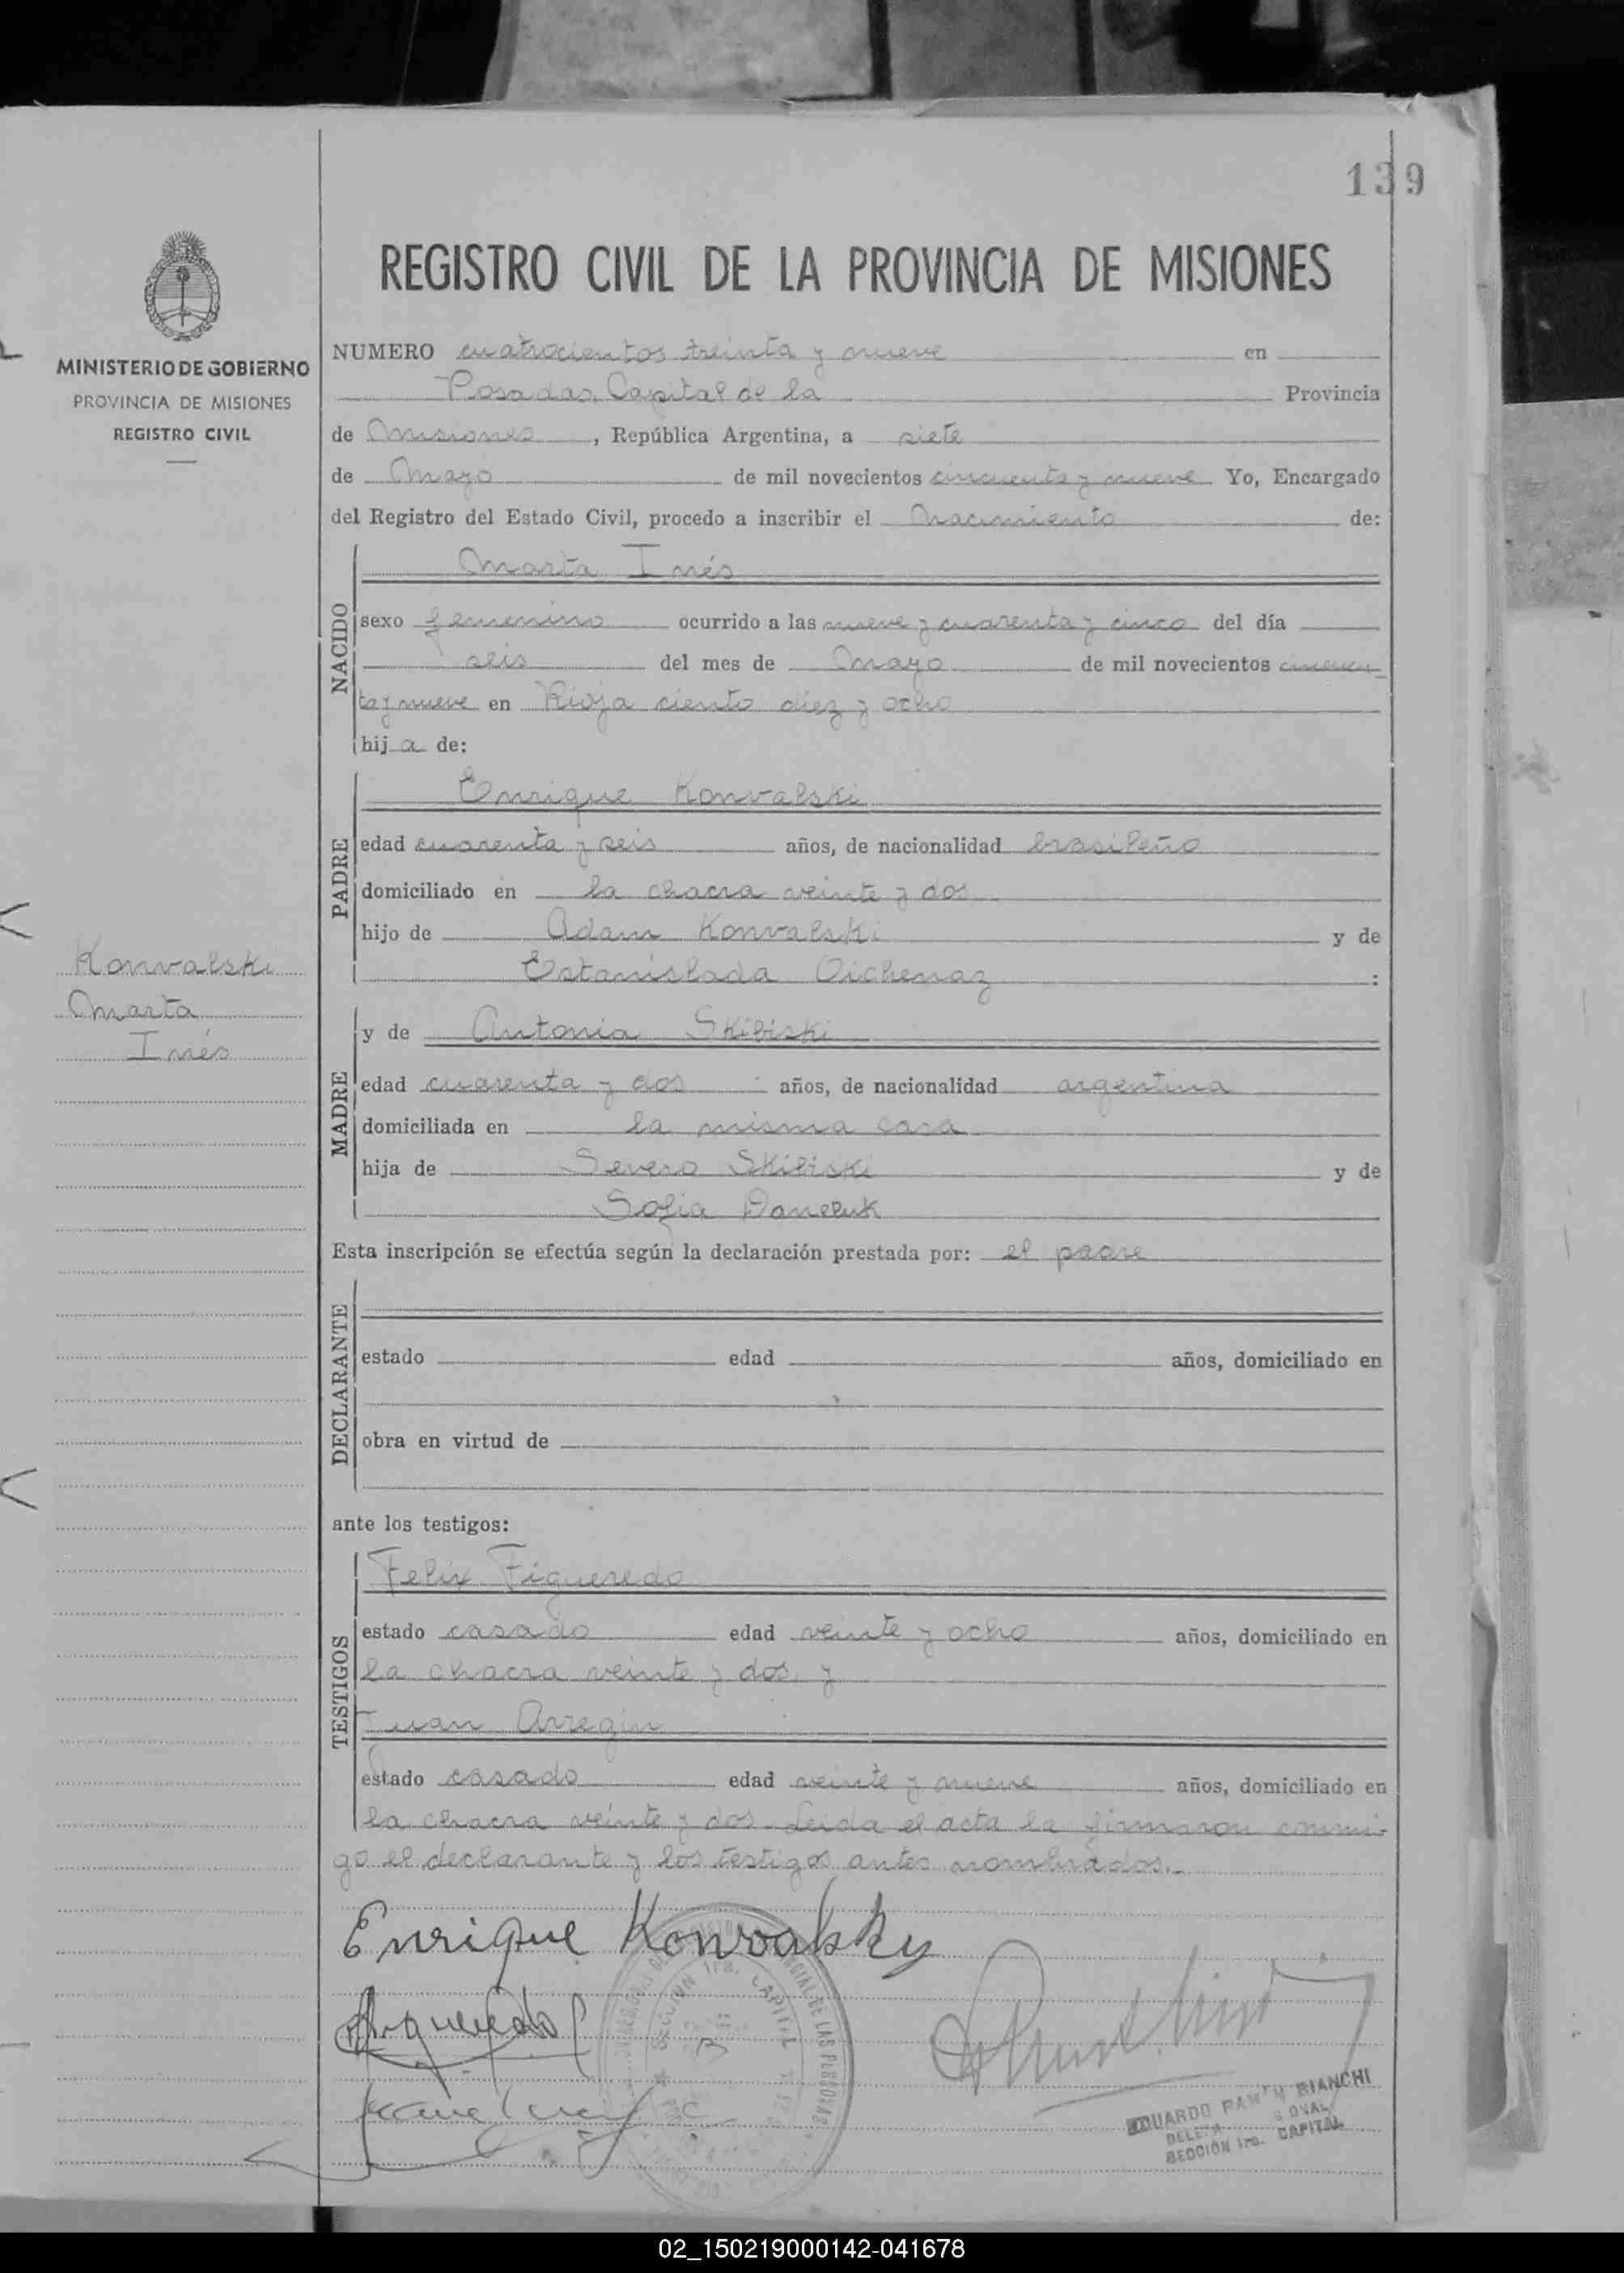 139
REGISTRO CIVIL DE LA PROVINCIA DE MISIONES
MINISTERIO DE GOBIERNO
PROVINCIA DE MISIONES
REGISTRO CIVIL
NUMERO cuatrocientos treinta y nueve en
Posadas, Capital de la Provincia
de Misiones, República Argentina, a siete
de Mayo de mil novecientos cincuenta y nueve Yo, Encargado
del Registro del Estado Civil, procedo a inscribir el Nacimiento de:
NACIDO
Marta Inés
sexo femenino ocurrido a las nueve y cuarenta y cinco del día
seis del mes de Mayo de mil novecientos cincuen
ta y nueve en Rioja ciento diez y ocho
hija de:
PADRE
Enrique Konvalski
edad cuarenta y seis años, de nacionalidad brasileño
domiciliado en la chacra veinte y dos
hijo de Adam Konvalski y de
Estanislada Oichenaz :
Konvalski
Marta
Inés
MADRE
y de Antonia Skibiski
edad cuarenta y dos años, de nacionalidad argentina
domiciliada en la misma casa
hija de Severo Skibiski y de
Sofia Daneluk
Esta inscripción se efectúa según la declaración prestada por: el padre
DECLARANTE
estado edad años, domiciliado en
obra en virtud de
ante los testigos:
TESTIGOS
Felix Figueredo
estado casado edad veinte y ocho años, domiciliado en
la chacra veinte y dos, y
Juan Arregin
estado casado edad veinte y nueve años, domiciliado en
la chacra veinte y dos. Leida el acta la firmaron conmi-
go el declarante y los testigos antes nombrados.-
Enrique Konvalsky
Figueredo
SECCION 1ra. CAPITAL
DE LAS PERSONAS
EDUARDO RAMON BIANCHI
SECCIÓN 1ra. CAPITAL
02_150219000142-041678